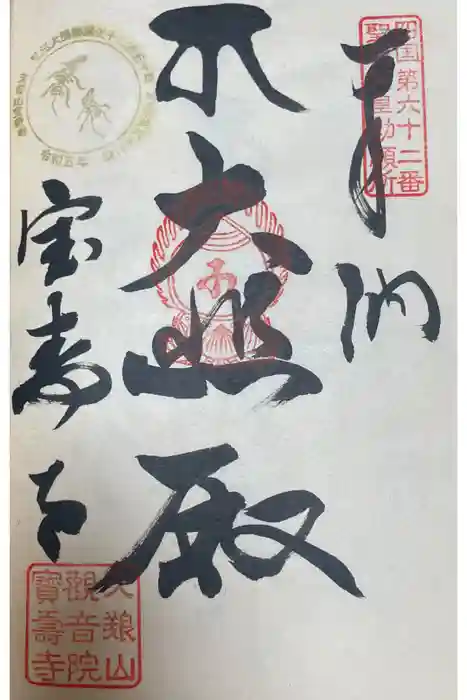 四国第六十二番
聖武天皇勅願所
奉納
大悲殿
宝寿寺
令和五年
天養山
観音院
寶壽寺